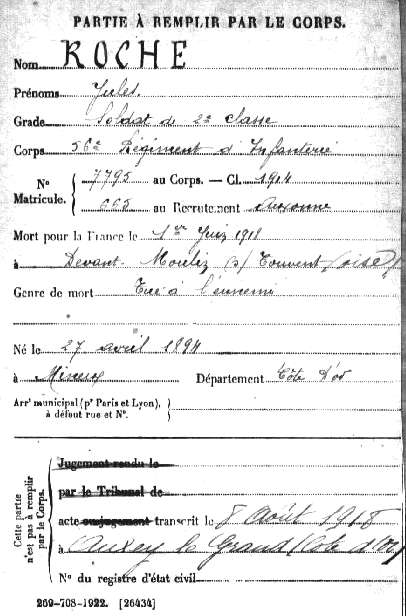 PARTIE À REMPLIR PAR LE CORPS.
Nom ROCHE
Prénoms Jules
Grade Soldat de 2e classe
Corps 56e Régiment d'Infanterie
No Matricule. { 7795 au Corps. — Cl. 1914
au Recrutement Auxonne
Mort pour la France le 1er Juin 1918
à Devant Moulin s/ Touvent (oise)
Genre de mort Tué à l'ennemi
Né le 27 avril 1894
à Département Côte d'or
Arrt municipal (pr Paris et Lyon), à défaut rue et No.
Cette partie n'est pas à remplir par le Corps.
Jugement rendu le
par le Tribunal de
acte ou jugement transcrit le 8 Août 1918
à Auxey le Grand (Côte d'Or)
No du registre d'état civil
269-708-1922. [26434]